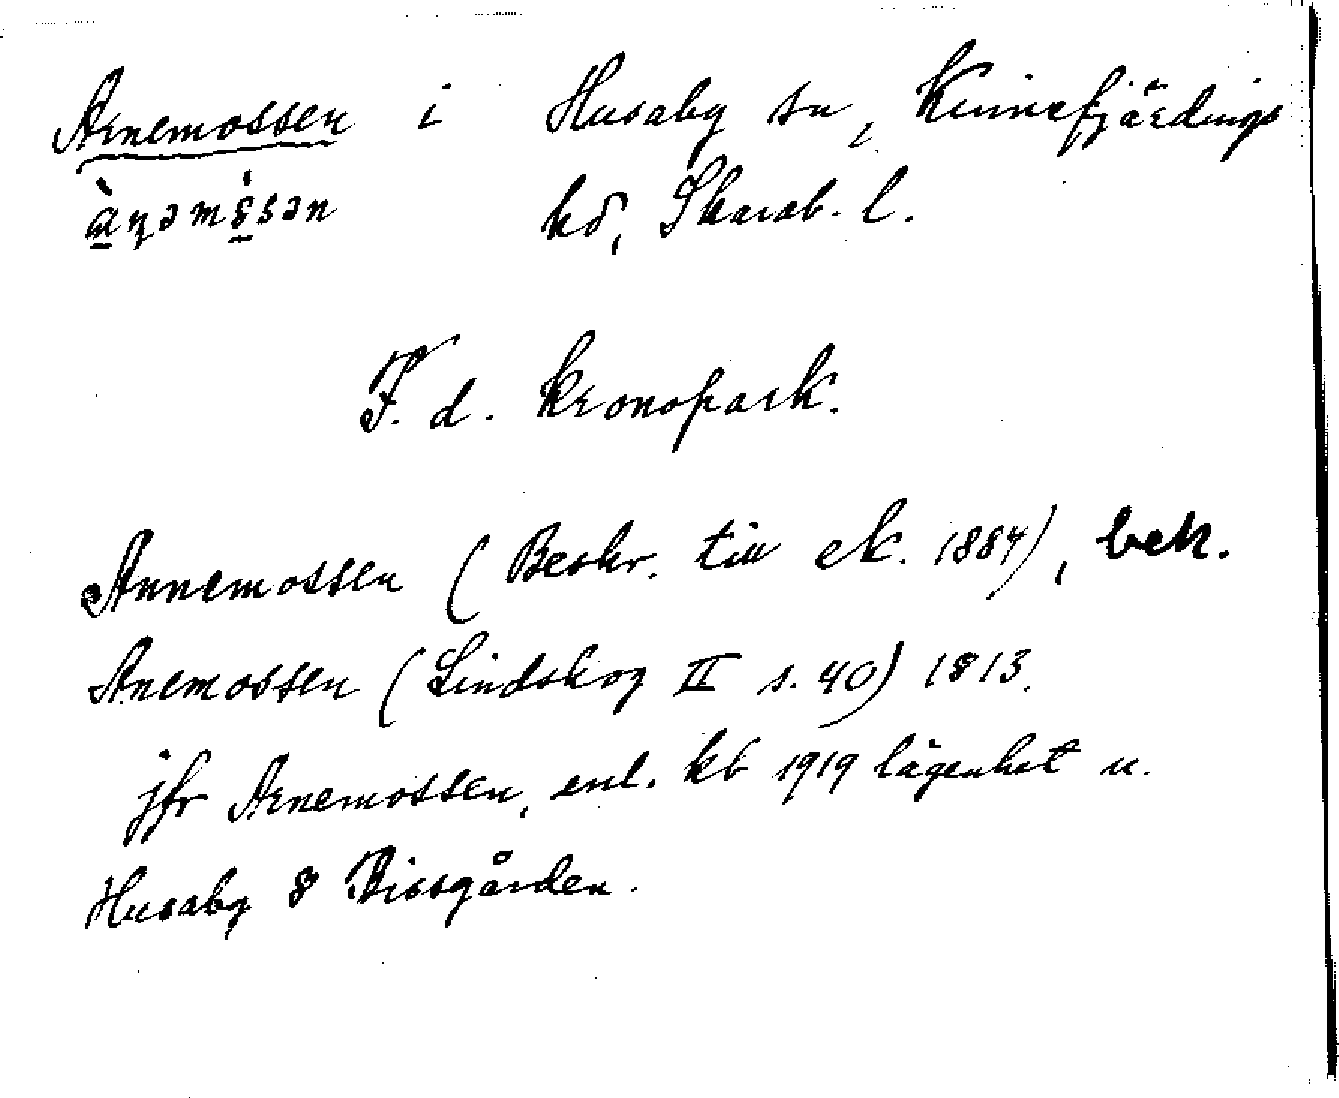 Arnemossen i Husaby sn, Kinnefjärdings
hd, Skarab. l.
F. d. kronopark.
Annemossen (Beskr. till ek. 1884), bek.
Anemossen (Lindskog II s. 40) 1813.
jfr Arnemossen, enl. kb 1919 lägenhet u.
Husaby 8 Bissgården.